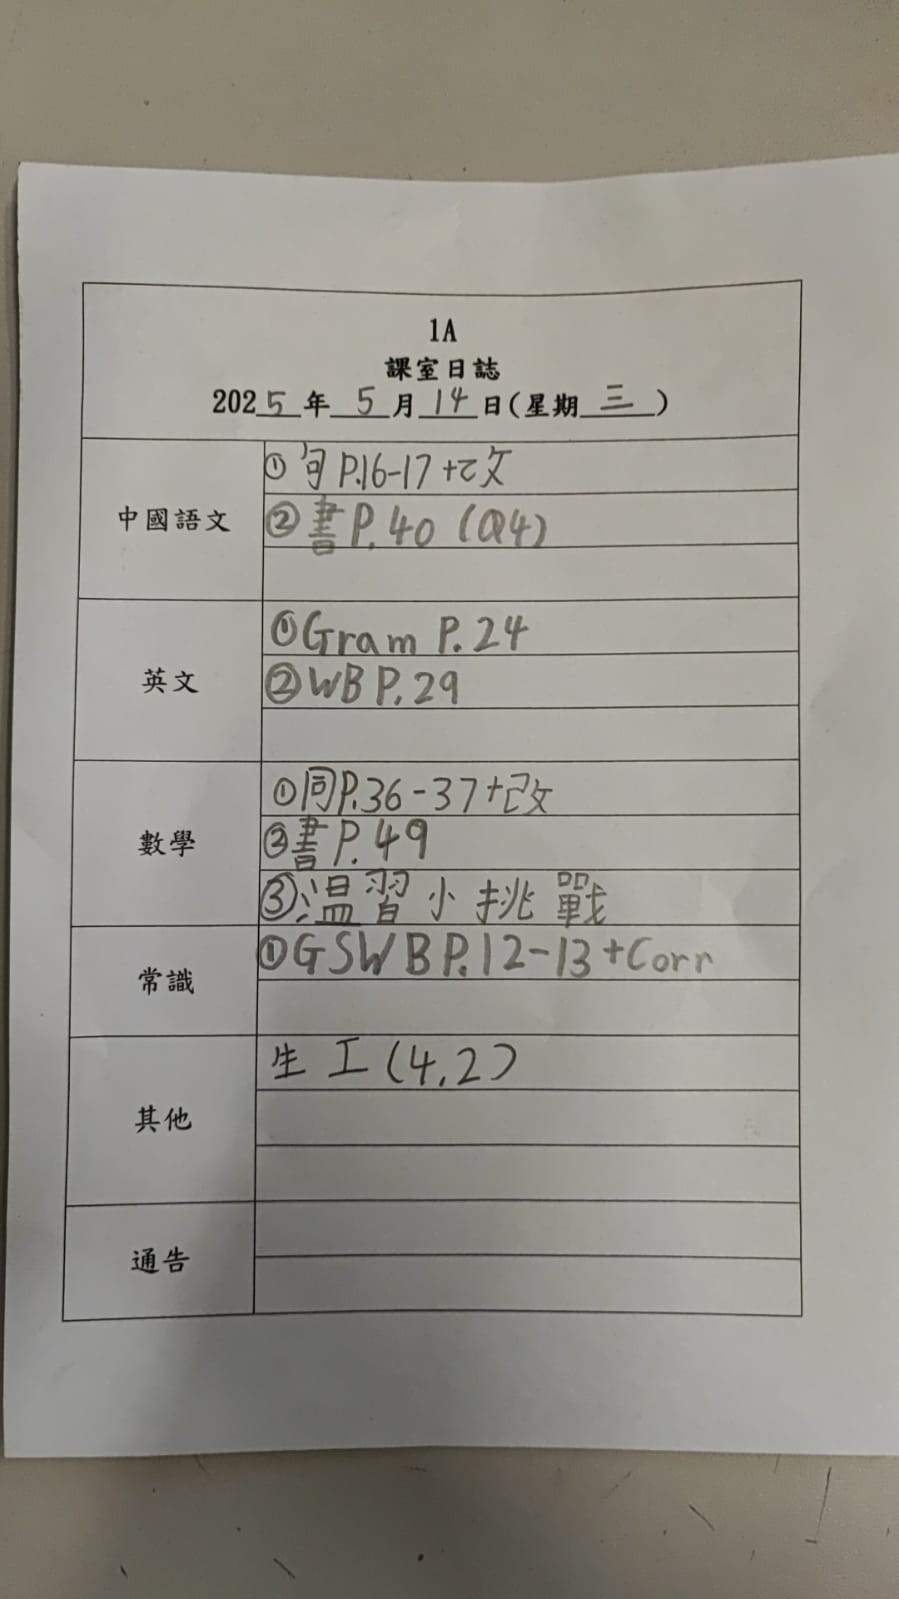 1A
課室日誌
2025年 5 月 14 日(星期 三 )
中國語文
① 句 P.16-17 +改
② 書 P.40 (Q4)
英文
① Gram P.24
② WB P.29
數學
① 同 P.36-37+改
② 書 P.49
③ 温習小挑戰
常識
① GSWB P.12-13 +Corr
其他
生工(4,2)
通告